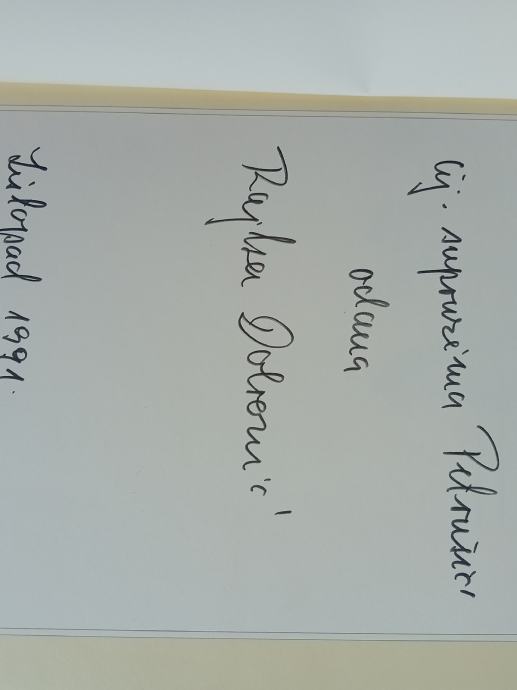 Cij. supruzima Petrušić
odana
Rajka Dobronić
Listopad 1991.